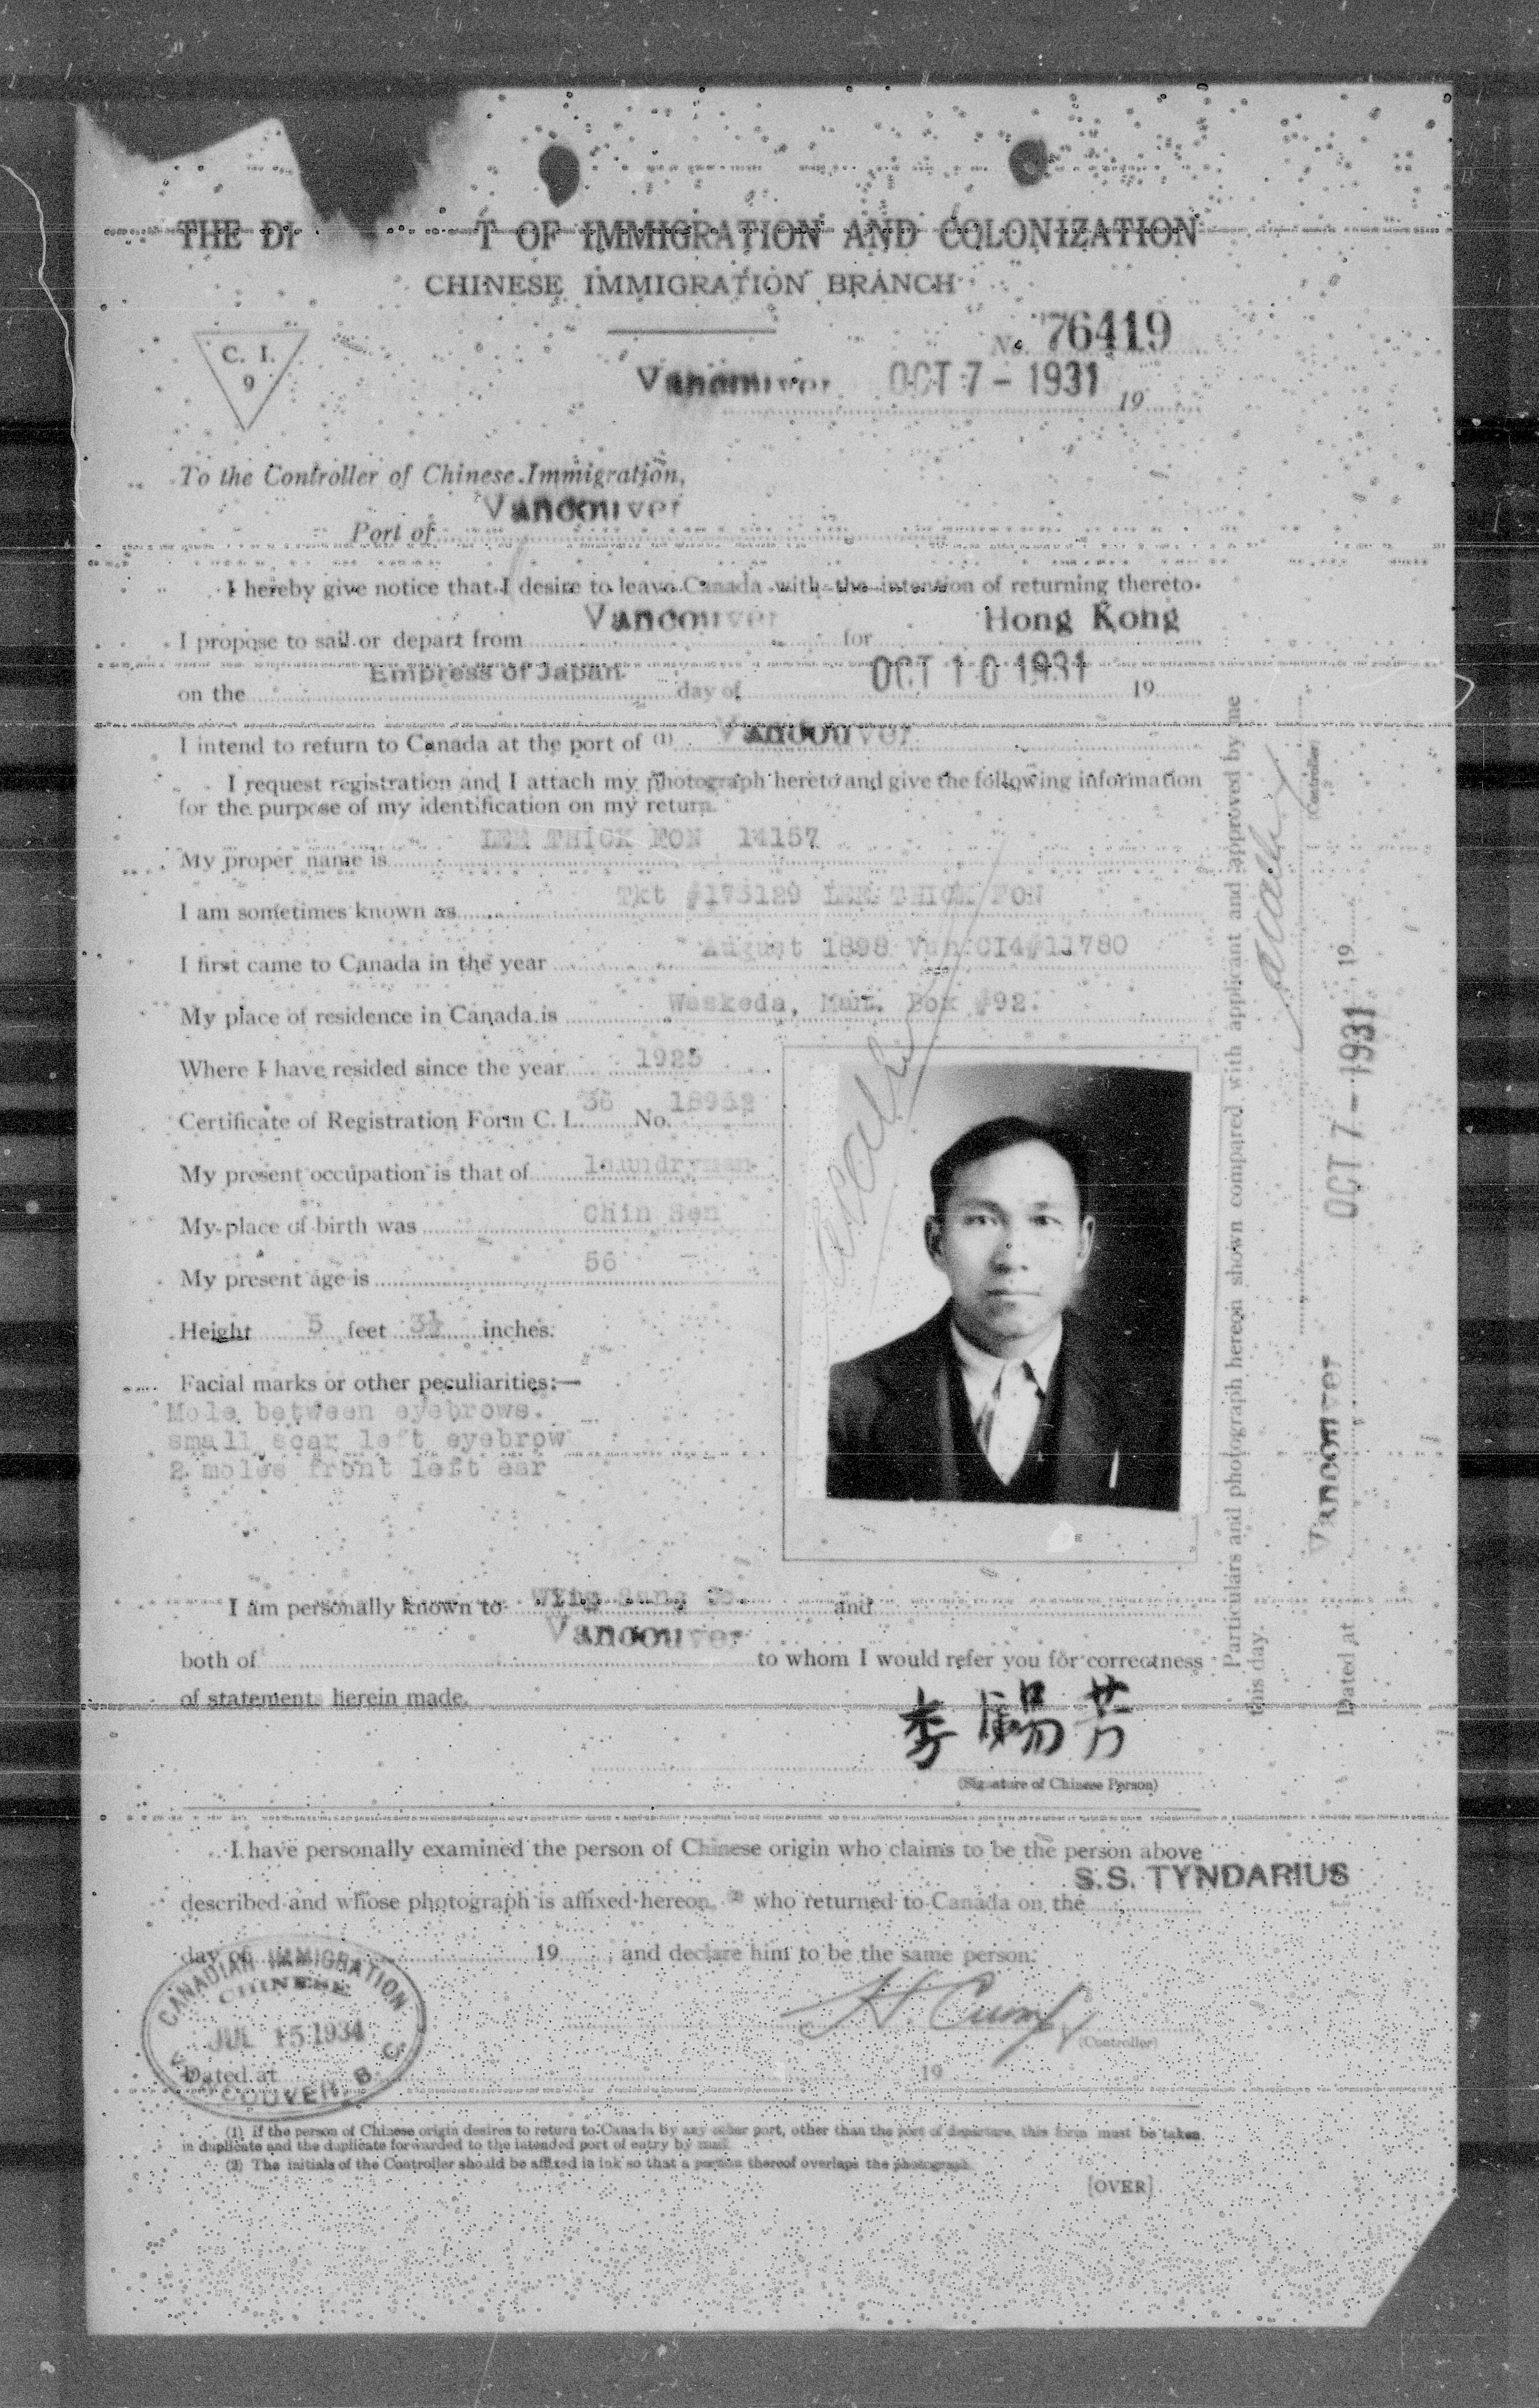 THE DI T OF IMMIGRATION AND COLONIZATION
CHINESE IMMIGRATION BRANCH
C. I.
9
No. 76419
Vancouver OCT 7 - 1931 19
To the Controller of Chinese Immigration,
Vancouver
Port of
I hereby give notice that I desire to leave Canada with the intention of returning thereto.
Vancouver Hong Kong
I propose to sail or depart from for
Empress of Japan OCT 10 1931
on the day of 19
I intend to return to Canada at the port of (1) Vancouver
I request registration and I attach my photograph hereto and give the following information
for the purpose of my identification on my return.
LEE THICK FON 14157
My proper name is
Tkt #175129 LEE THICK FON
I am sometimes known as
August 1898 Van CI4#11780
I first came to Canada in the year
My place of residence in Canada is Waskeda, Man. Box #92.
Where I have resided since the year 1925
Certificate of Registration Form C. I. 36 No. 18952
My present occupation is that of laundryman
My place of birth was Chin Sen
My present age is 56
Height 5 feet 3½ inches.
Facial marks or other peculiarities:—
Mole between eyebrows.
small scar left eyebrow
2 moles front left ear
I am personally known to Sang Co. and
Vancouver
both of to whom I would refer you for correctness
of statements herein made.
李錫芳
(Signature of Chinese Person)
I have personally examined the person of Chinese origin who claims to be the person above
S.S. TYNDARIUS
described and whose photograph is affixed hereon, (2) who returned to Canada on the
day of 19 ; and declare him to be the same person.
CANADIAN IMMIGRATION
CHINESE
JUL 15 1934
VANCOUVER, B. C.
(Controller)
Dated at 19
(1) If the person of Chinese origin desires to return to Canada by any other port, other than the port of departure, this form must be taken
in duplicate and the duplicate forwarded to the intended port of entry by mail.
(2) The initials of the Controller should be affixed in ink so that a portion thereof overlaps the photograph.
[OVER]
Particulars and photograph hereon shown compared with applicant and approved by me
this day.
(Controller)
Dated at Vancouver OCT 7 - 1931 19